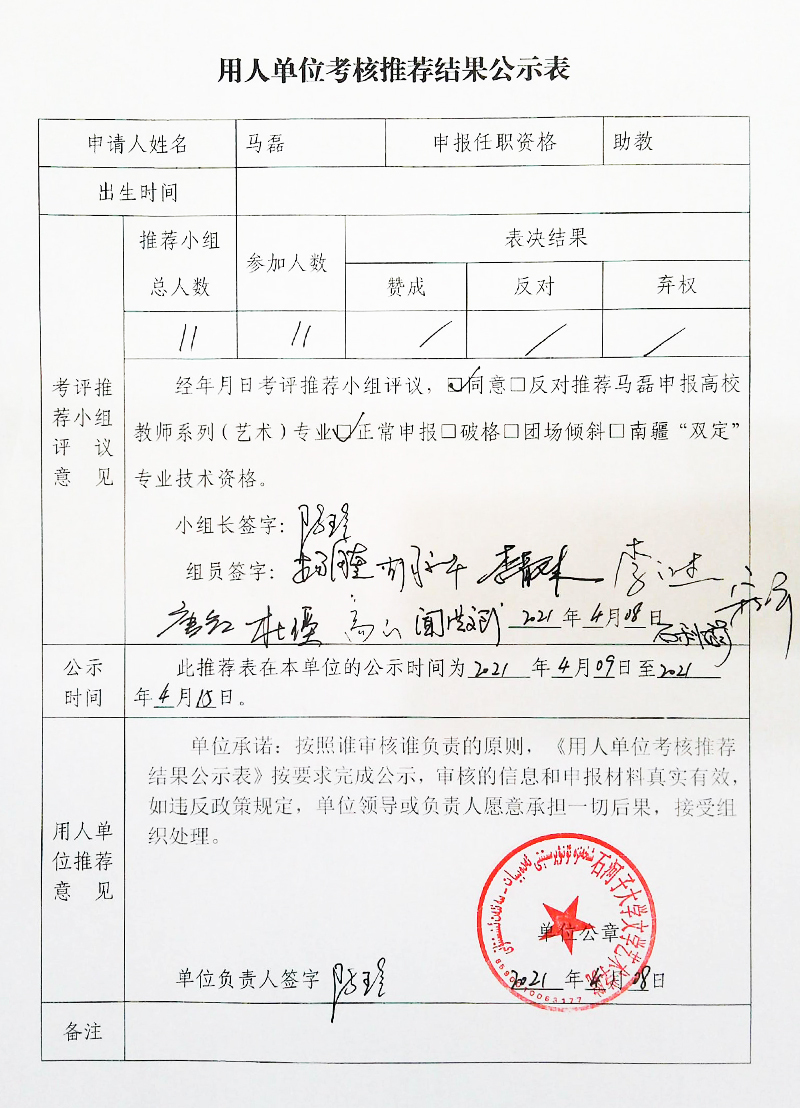 用人单位考核推荐结果公示表
申请人姓名 马磊 申报任职资格 助教
出生时间
推荐小组总人数 参加人数 表决结果
赞成 反对 弃权
11 11 / / /
考评推荐小组评议意见
经年月日考评推荐小组评议，☑同意□反对推荐马磊申报高校
教师系列（艺术）专业☑正常申报□破格□团场倾斜□南疆“双定”
专业技术资格。
小组长签字：
组员签字： 李
唐红 杜 高 闻 2021年4月08日
公示时间
此推荐表在本单位的公示时间为2021年4月09日至2021
年4月15日。
用人单位推荐意见
单位承诺：按照谁审核谁负责的原则，《用人单位考核推荐
结果公示表》按要求完成公示，审核的信息和申报材料真实有效，
如违反政策规定，单位领导或负责人愿意承担一切后果，接受组
织处理。
石河子大学文学艺术学院
单位公章
单位负责人签字 2021年4月08日
备注